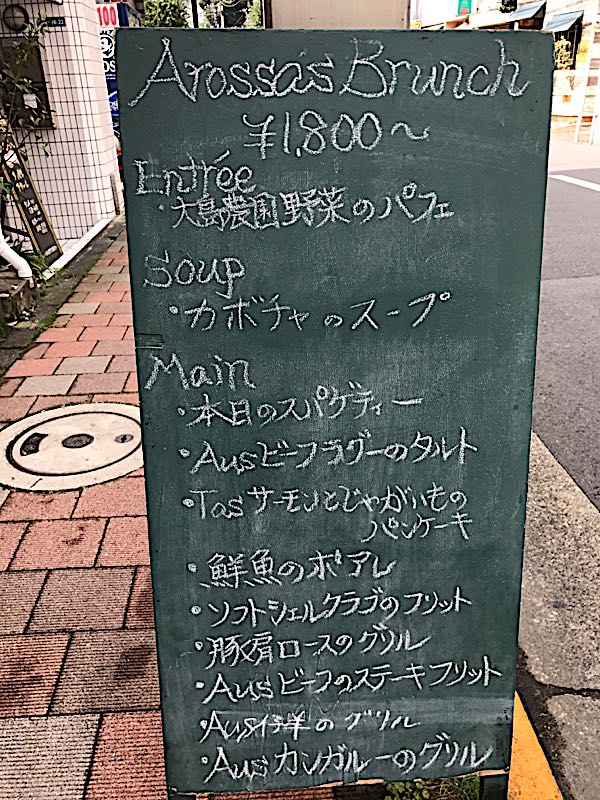 Arossa's Brunch
¥1,800~
Entrée
・大島農園野菜のパフェ
Soup
・カボチャのスープ
Main
・本日のスパゲティー
・Ausビーフラグーのタルト
・Tasサーモンとじゃがいもの
パンケーキ
・鮮魚のポアレ
・ソフトシェルクラブのフリット
・豚肩ロースのグリル
・Ausビーフのステーキフリット
・Aus仔羊のグリル
・Ausカンガルーのグリル
100